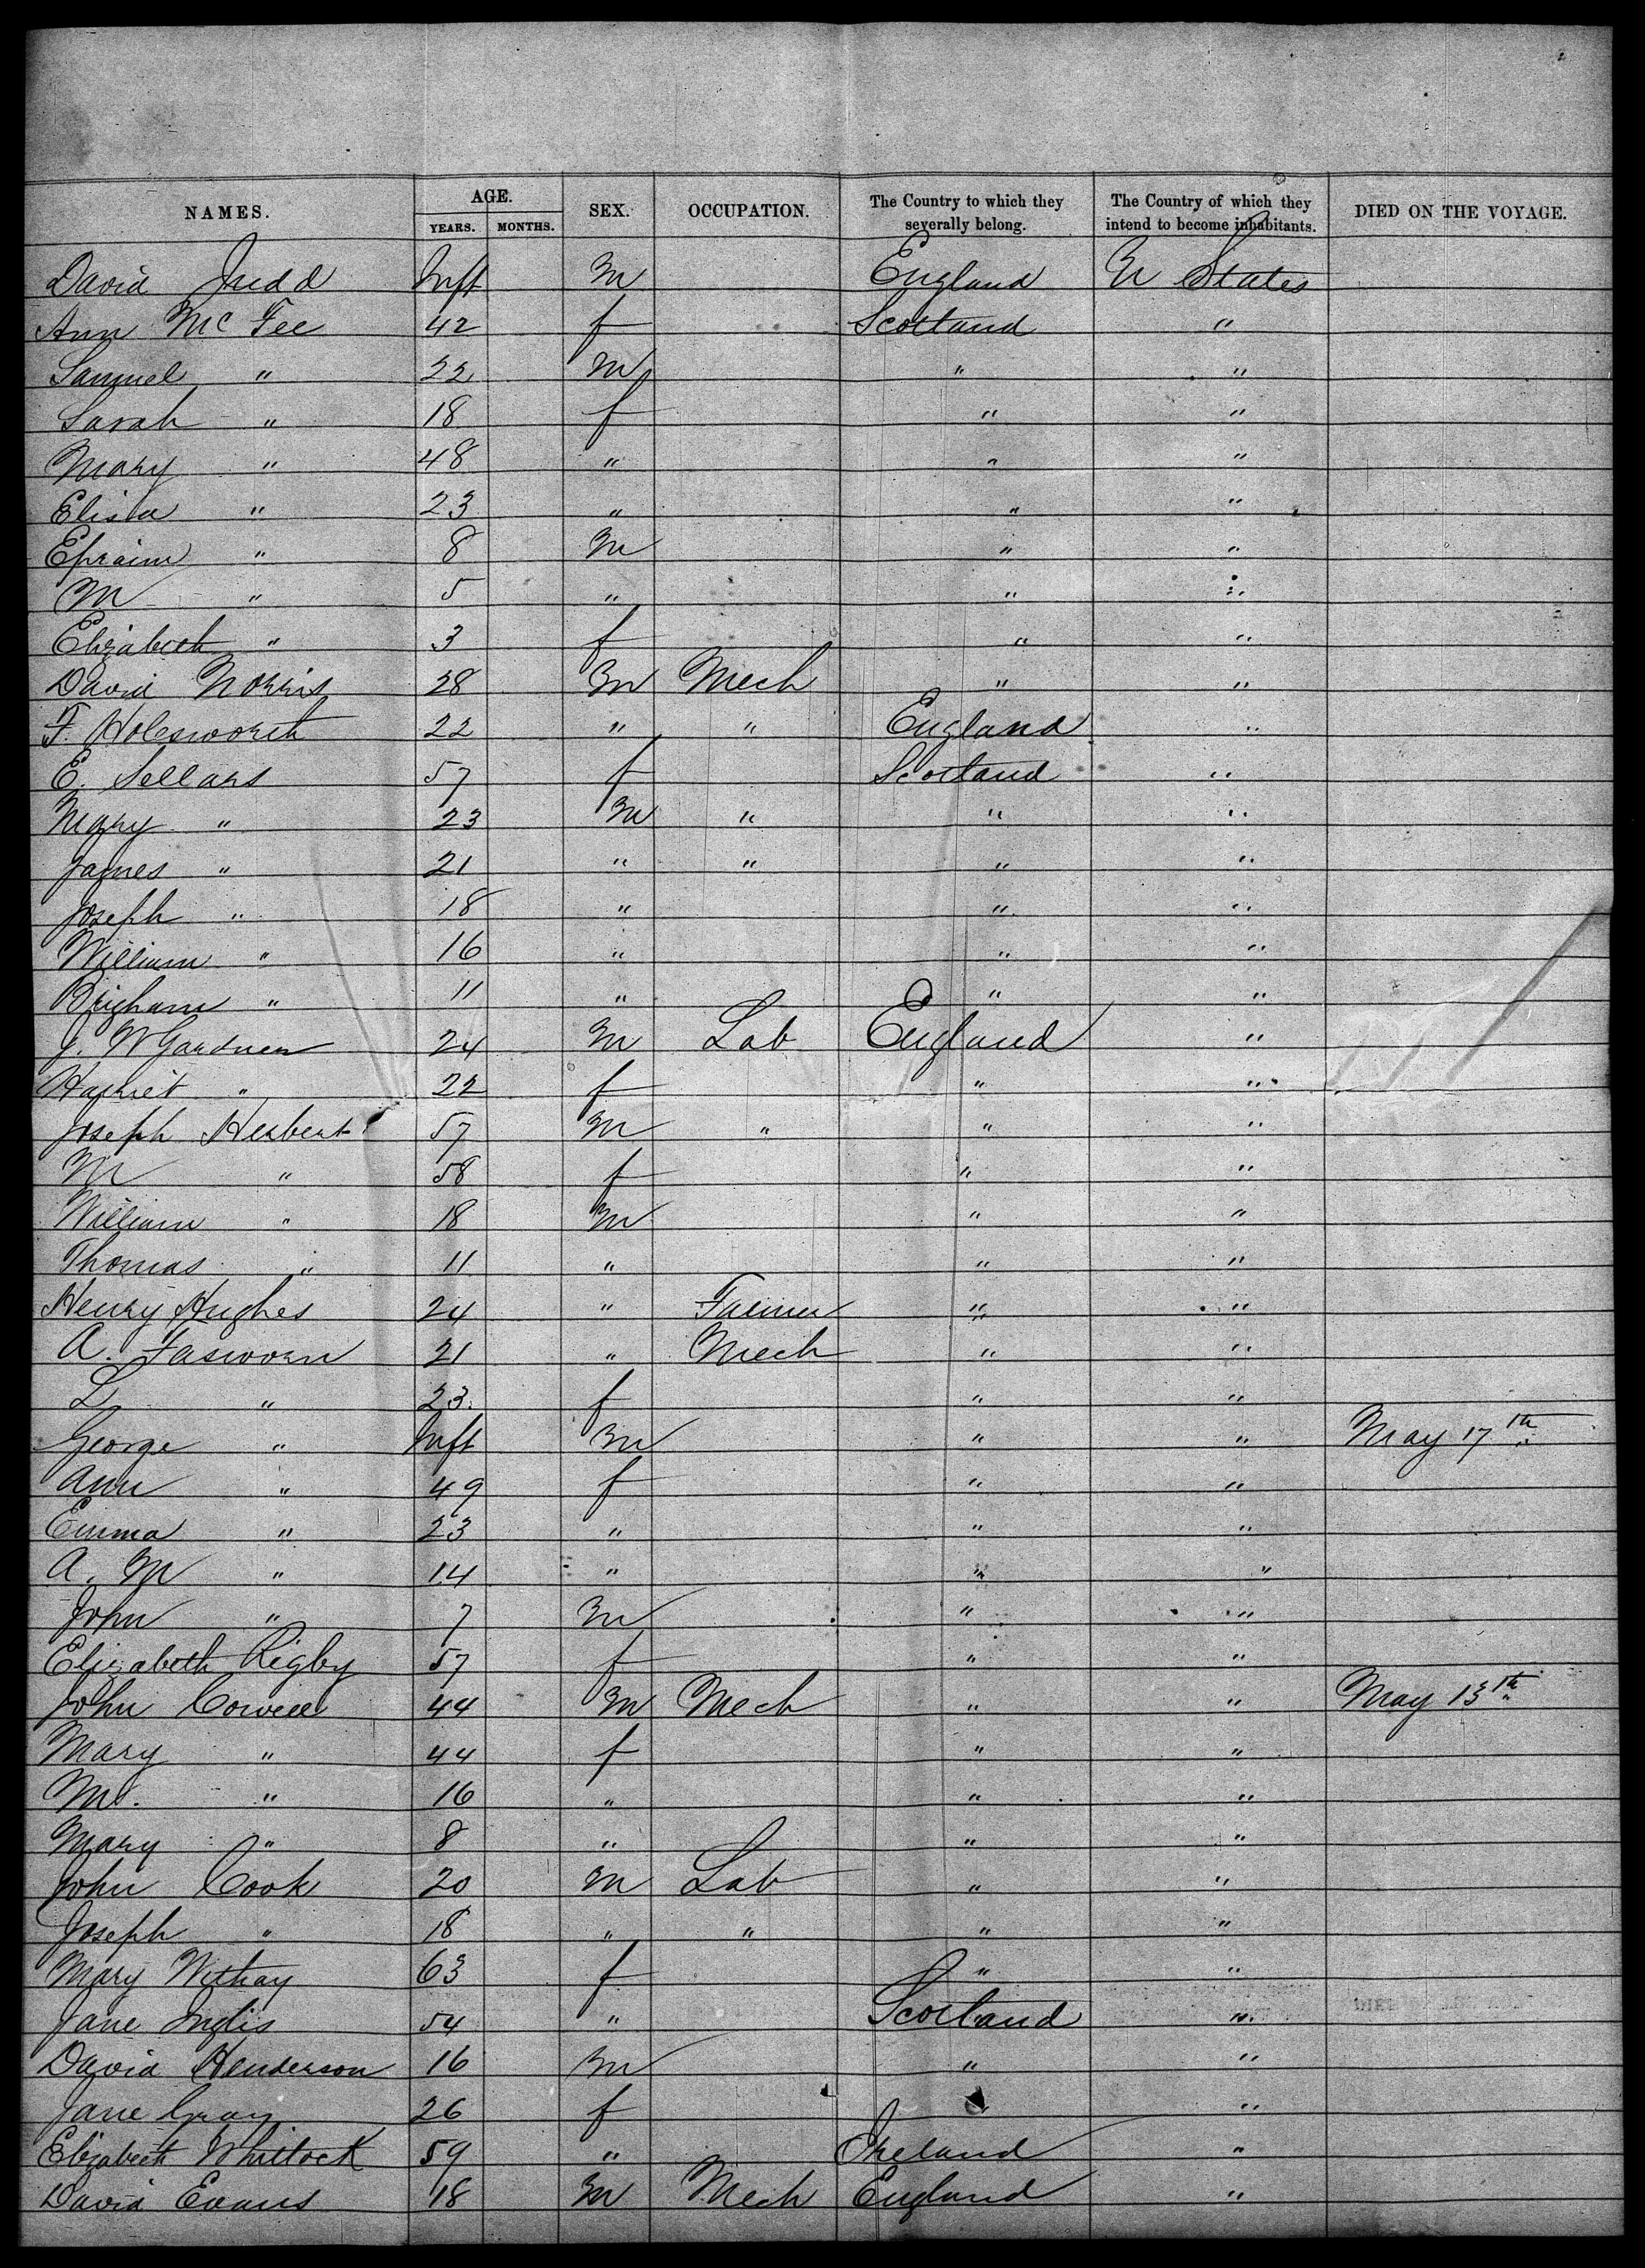 NAMES. AGE. YEARS. MONTHS. SEX. OCCUPATION. The Country to which they severally belong. The Country of which they intend to become inhabitants. DIED ON THE VOYAGE.
David Judd Inft M England U States
Ann McFee 42 f Scotland "
Samuel " 22 M " "
Sarah " 18 f " "
Mary " 48 " " "
Elisa " 23 " " "
Epraim " 8 M " "
M " 5 " " "
Elizabeth " 3 f " "
David Norris 28 M Mech " "
F. Holesworth 22 " " England "
E. Sellars 57 f Scotland "
Mary " 23 M " " "
James " 21 " " " "
Joseph " 18 " " "
William " 16 " " "
Brigham " 11 " " "
J. W Gardner 24 M Lab England "
Harriet " 22 f " "
Joseph Herbert 57 M " " "
M " 58 f " "
William " 18 M " "
Thomas " 11 " " "
Henry Hughes 24 " Farmer " "
A. Fasworn 21 " Mech " "
L " 23 f " "
George " Inft M " " May 17th
Ann " 49 f " "
Emma " 23 " " "
A. M " 14 " " "
John " 7 M " "
Elizabeth Rigby 57 f " "
John Corwell 44 M Mech " " May 13th
Mary " 44 f " "
M. " 16 " " "
Mary " 8 " " "
John Cook 20 M Lab " "
Joseph " 18 " " " "
Mary Withay 63 f " "
Jane Inglis 54 " Scotland "
David Henderson 16 M " "
Jane Gray 26 f " "
Elizabeth Whitlock 59 " Ireland "
David Evans 18 M Mech England "